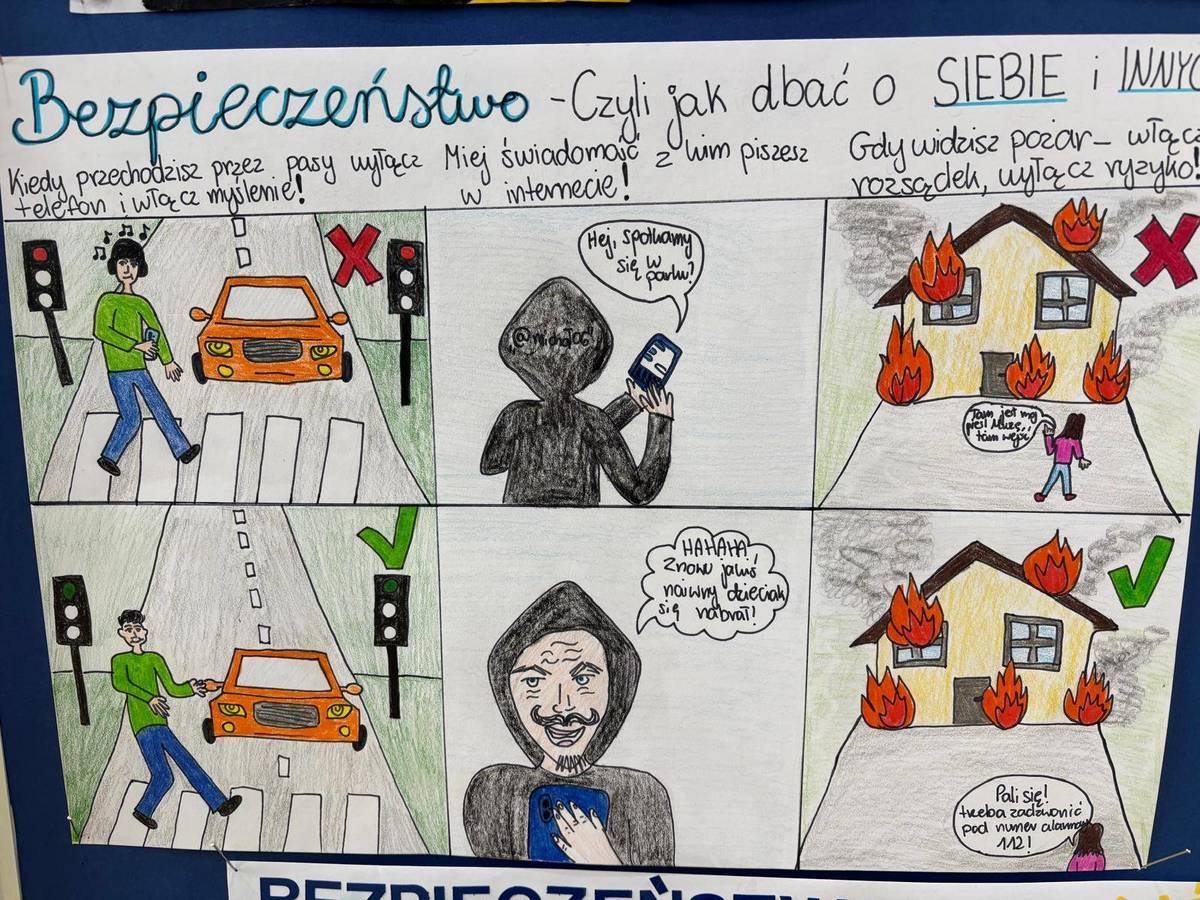 Bezpieczeństwo - Czyli jak dbać o SIEBIE i INNYC
Kiedy przechodzisz przez pasy wyłącz
telefon i włącz myślenie!
Miej świadomość z kim piszesz
w internecie!
Gdy widzisz pożar - włącz
rozsądek, wyłącz ryzyko!
Hej, spotkamy
się w
parku?
Tam jest mój
pies! Muszę
tam wejść!
HAHAHA!
Znowu jakiś
naiwny dzieciak
się nabrał!
Pali się!
trzeba zadzwonić
pod numer alarmowy
112!
BEZPIECZEŃSTW